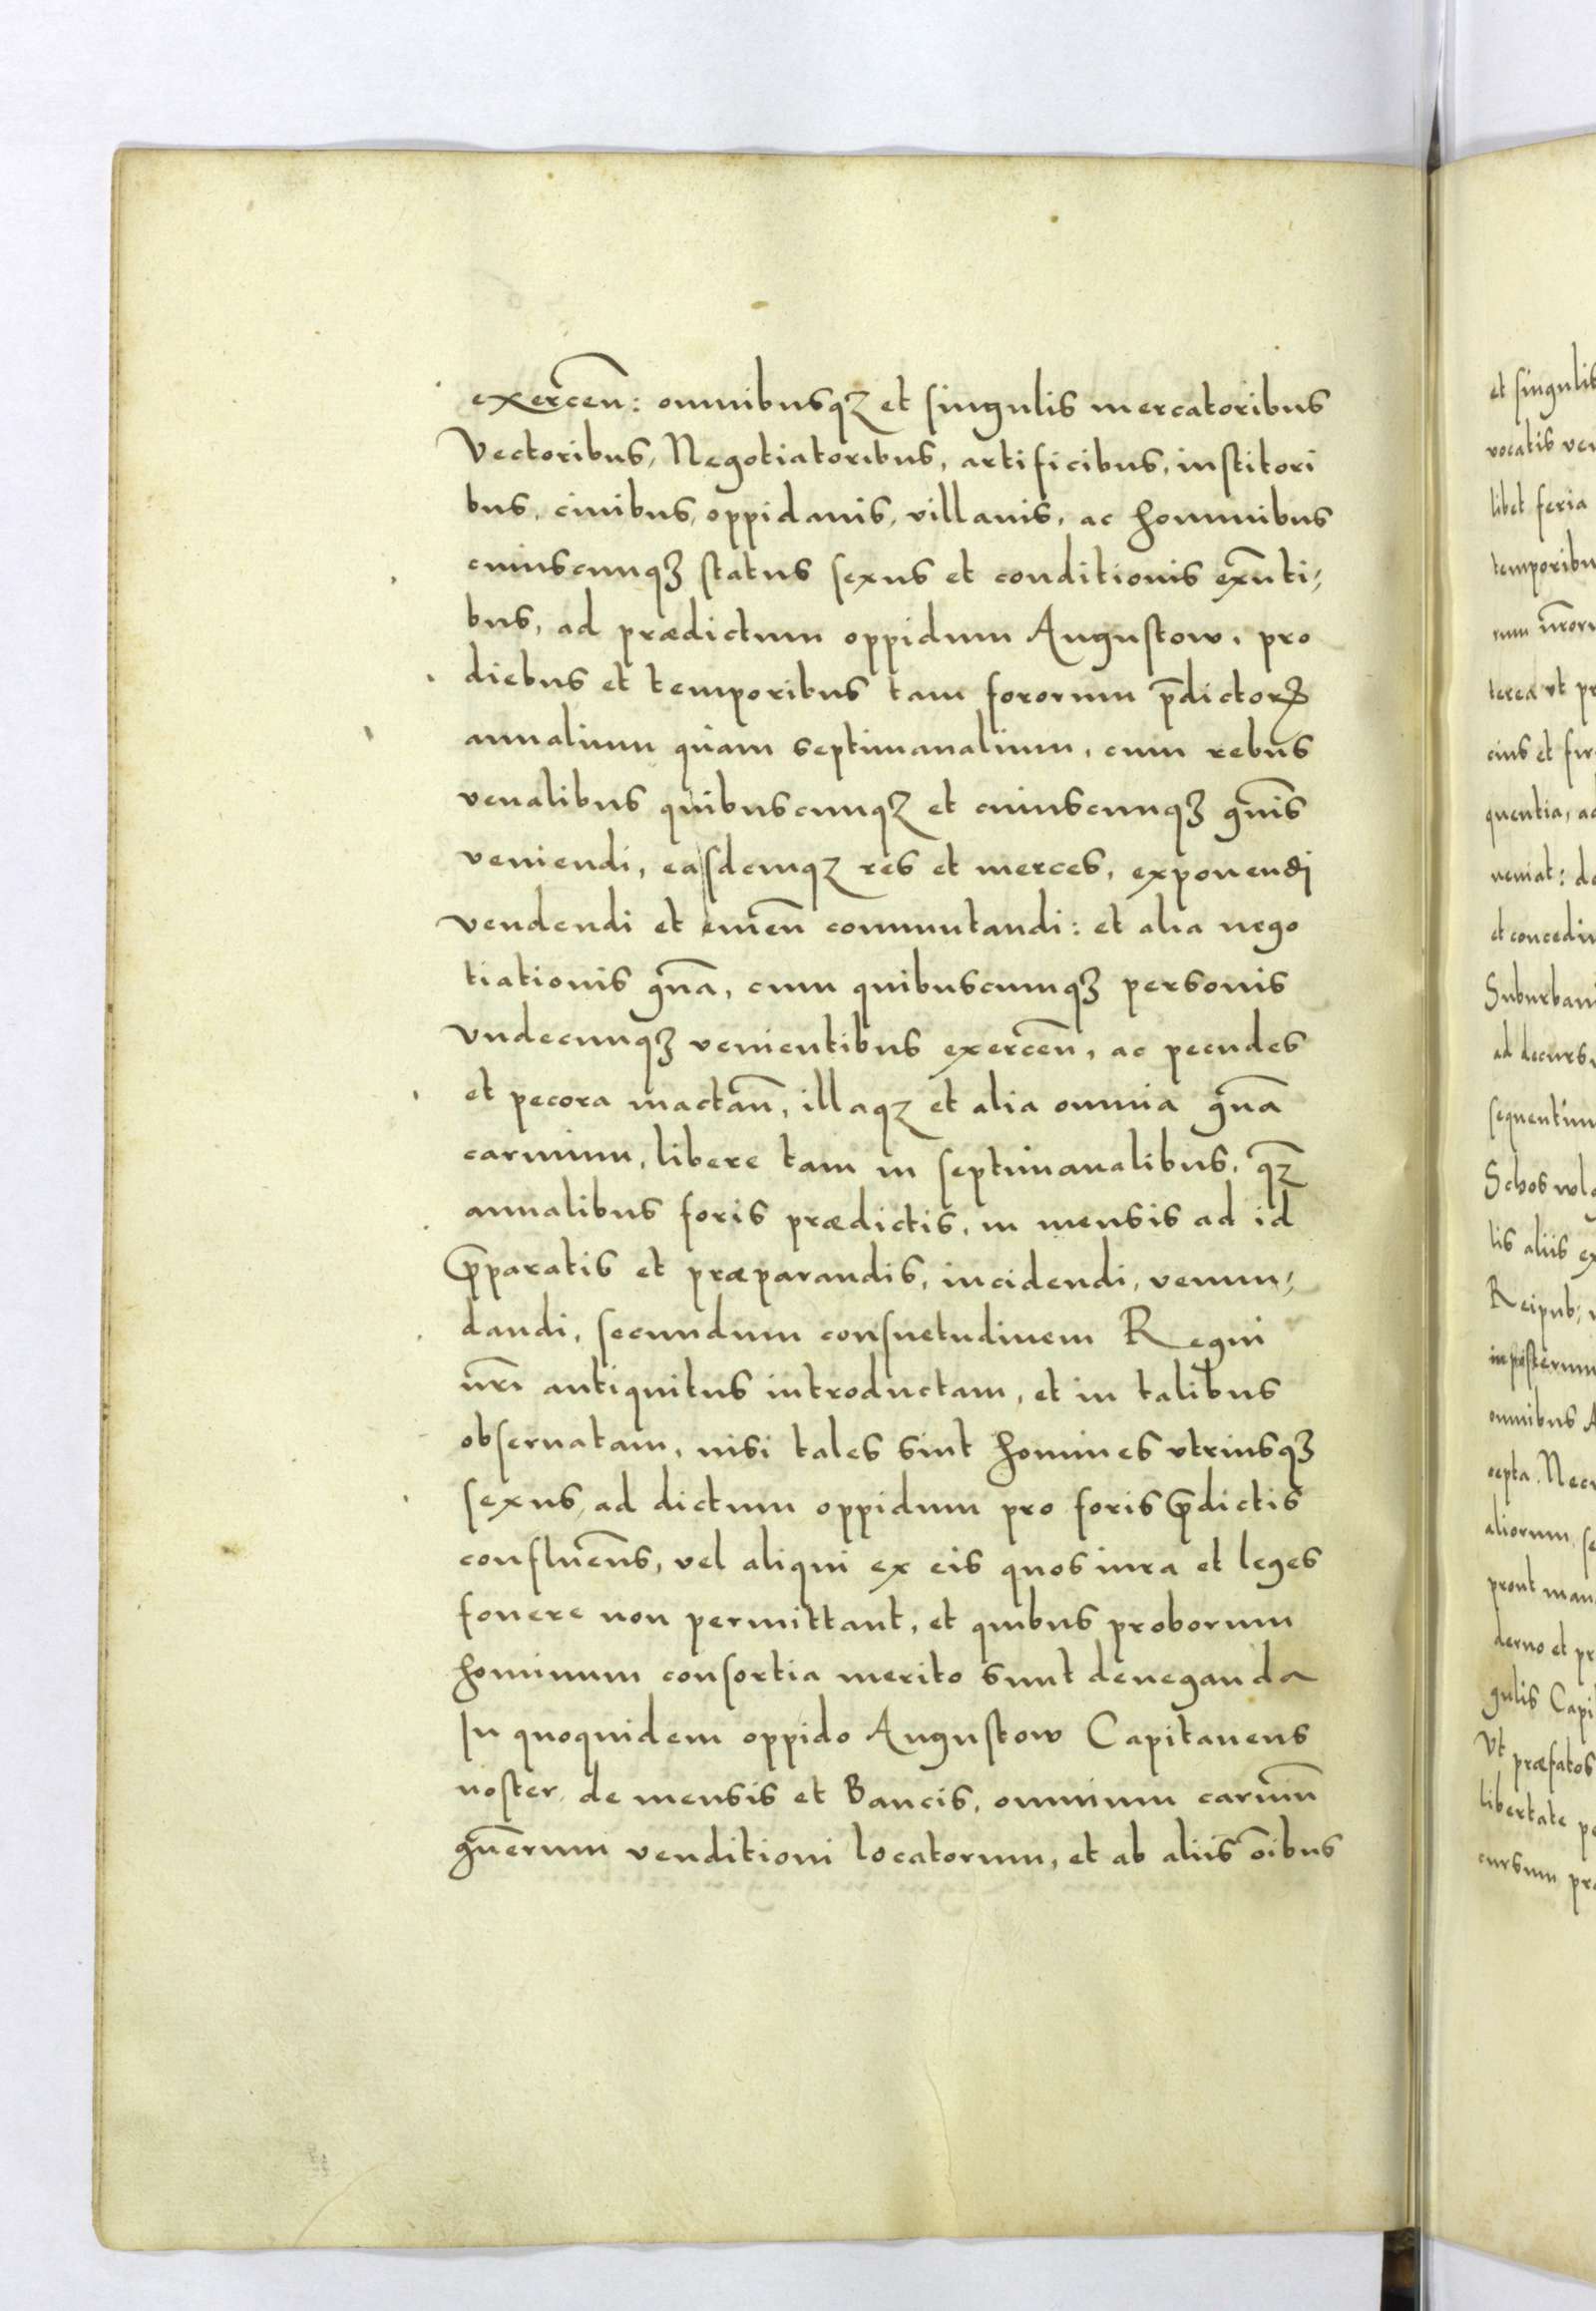 exercen̄: omnibusqꝫ et singulis mercatoribus
Vectoribus, Negotiatoribus, artificibus, institori
bus, ciuibus, oppidanis, villanis, ac hominibus
cuiuscunqꝫ status sexus et conditionis exn̄ti⸗
bus, ad prædictum oppidum Augustow, pro
diebus et temporibus tam fororum p̄dictorꝝ
annalium quam septimanalium, cum rebus
venalibus quibuscunqꝫ et cuiuscunqꝫ gn̄is
veniendi, easdemqꝫ res et merces, exponendi
vendendi et emen̄ commutandi: et alia nego
tiationis gn̄a, cum quibuscumqꝫ personis
vndecunqꝫ venientibus exercen̄, ac pecudes
et pecora mactan̄, illaqꝫ et alia omnia gn̄a
carnium, libere tam in septimanalibus, qꝫ̄
annalibus foris prædictis, in mensis ad id
p̄paratis et præparandis, incidendi, venun⸗
dandi, secundum consuetudinem Regni
nr̄i antiquitus introductam, et in talibus
obseruatam, nisi tales sint homines vtriusqꝫ
sexus, ad dictum oppidum pro foris p̄dictis
confluen̄s, vel aliqui ex eis quos iura et leges
fouere non permittant, et quibus proborum
hominum consortia merito sunt deneganda
In quoquidem oppido Augustow Capitaneus
noster de mensis et Bancis, omnium carniū
gn̄erum venditioni locatorum, et ab aliis oībus
et singulis
vocatis
libet feria
temporibu
rum nr̄oru
terea vt pr
cius et fre
quentia, ac
ueniat: d
et concedi
Suburban
ad decurs
sequentiu
lis aliis ex
Reipub;
inposterum
omnibus A
cepta. Nec
aliorum, se
prout man
derno et pr
gulis Capi
Vt præfatos
libertate pe
cursum pr